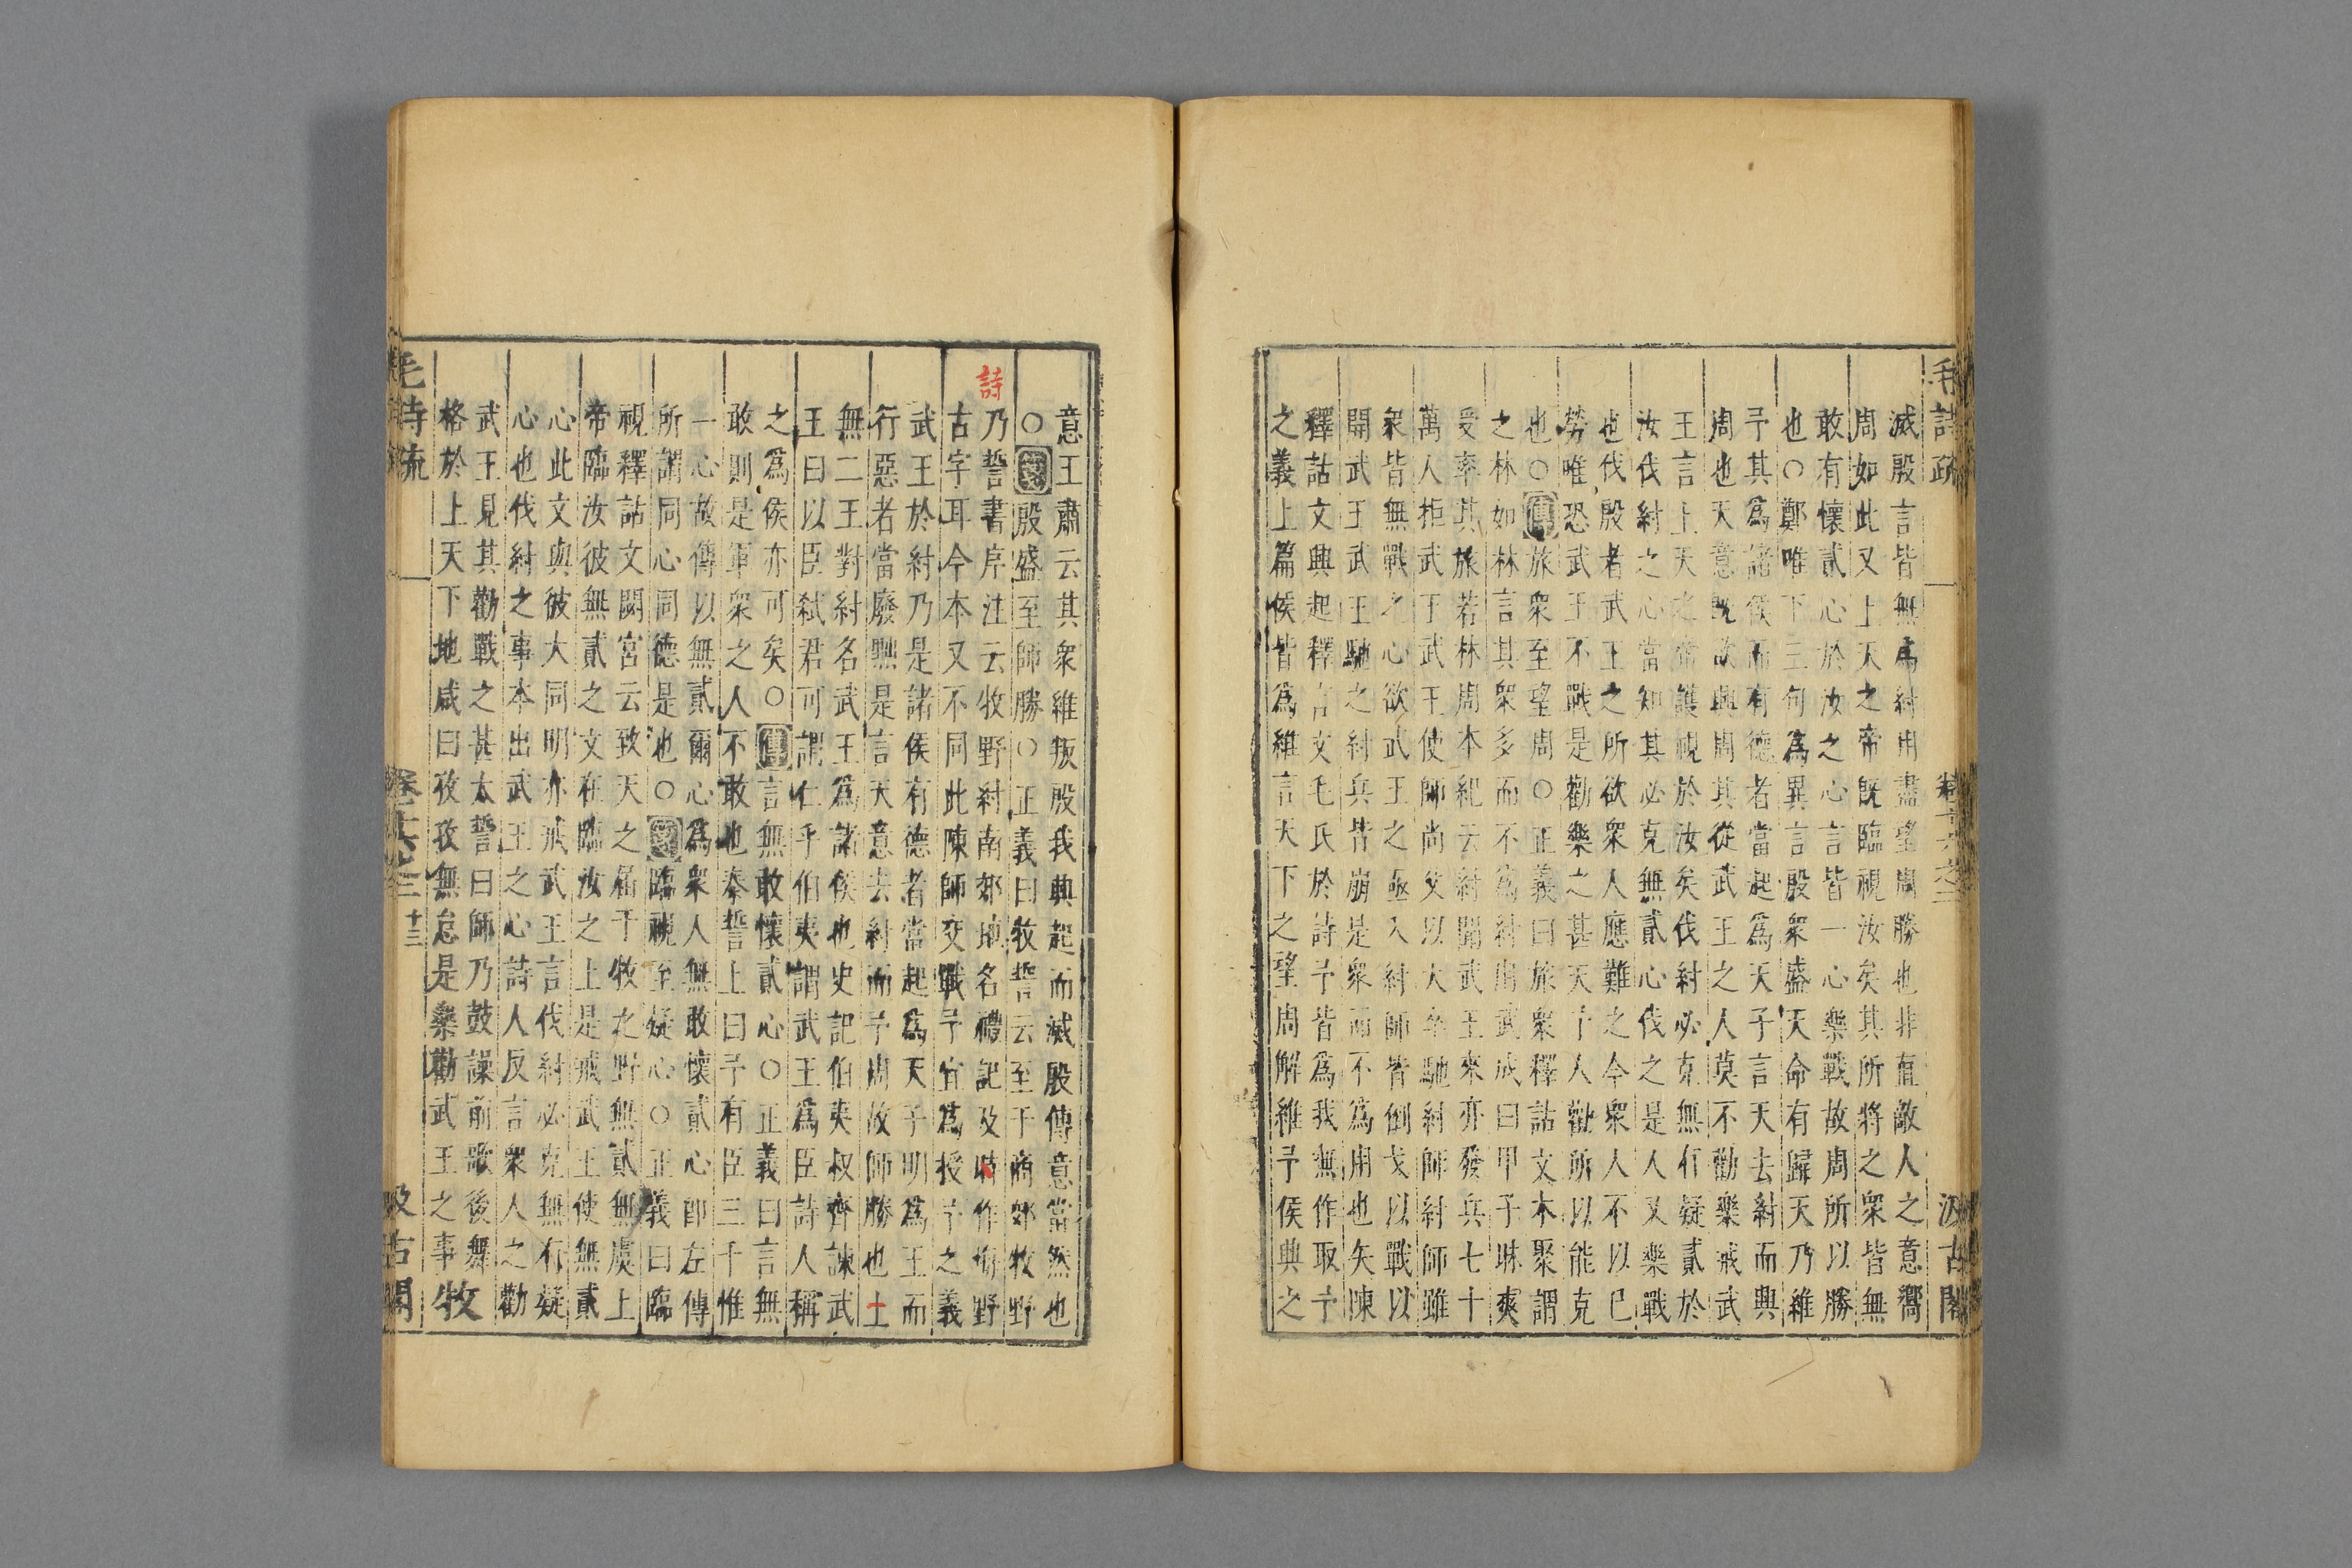 毛詩疏 卷十六之二 汲古閣
滅殷言皆無爲紂用盡望周勝也非有敵人之意嚮
周如此又上天之帝既臨視汝矣其所將之衆皆無
敢有懷貳心於汝之心言皆一心樂戰故周所以勝
也○鄭唯下三句爲異言殷衆盛天命有歸天乃維
予其爲諸侯而有德者當起爲天子言天去紂而興
周也天意既欲興周其從武王之人莫不勸樂戒武
王言上天之帝護視於汝矣伐紂必克無有疑貳於
汝伐紂之心當知其必克無貳心伐之是人又樂戰
也伐殷者武王之所欲衆人應難之今衆人不以已
勞唯恐武王不戰是勸樂之甚天予人勸所以能克
也○傳旅衆至望周○正義曰旅衆釋詁文本聚謂
之林如林言其衆多而不爲紂用武成曰甲子昧爽
受率其旅若林周本紀云紂聞武王來亦發兵七十
萬人拒武王武王使師尚父以大卒馳紂師紂師雖
衆皆無戰之心欲武王之亟入紂師皆倒戈以戰以
開武王武王馳之紂兵皆崩是衆而不爲用也矢陳
釋詁文興起釋言文毛氏於詩予皆爲我無作取予
之義上篇侯皆爲維言天下之望周解維予侯興之
意王肅云其衆維叛殷我興起而滅殷傳意當然也
○箋殷盛至師勝○正義曰牧誓云至于商郊牧野
詩
乃誓書序注云牧野紂南郊地名禮記及時作坶野
古字耳今本又不同此陳師交戰予宜爲授予之義
武王於紂乃是諸侯有德者當起爲天子明爲王而
行惡者當廢黜是言天意去紂而予周故師勝也土
無二王對紂名武王爲諸侯也史記伯夷叔齊諫武
王曰以臣弒君可謂仁乎伯夷謂武王爲臣詩人稱
之爲侯亦可矣○傳言無敢懷貳心○正義曰言無
敢則是軍衆之人不敢也泰誓上曰予有臣三千惟
一心故傳以無貳爾心爲衆人無敢懷貳心即左傳
所謂同心同德是也○箋臨視至疑心○正義曰臨
視釋詁文閟宮云致天之屆于牧之野無貳無虞上
帝臨汝彼無貳之文在臨汝之上是戒武王使無貳
心此文與彼大同明亦戒武王言伐紂必克無有疑
心也伐紂之事本出武王之心詩人反言衆人之勸
武王見其勸戰之甚太誓曰師乃鼓譟前歌後舞
格於上天下地咸曰孜孜無怠是樂勸武王之事 牧
毛詩疏 卷十六之二 十三 汲古閣